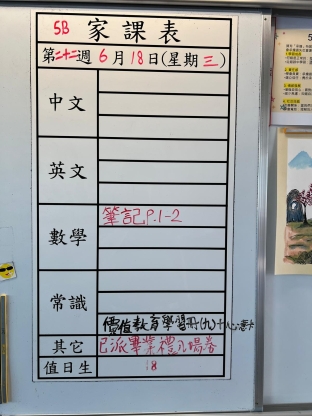 5B 家課表
第二十二週 6月18日(星期三)
中文
英文
數學
筆記 P.1-2
常識
價值教育學習冊(九)+
其它
已派畢業禮入場券
值日生
8